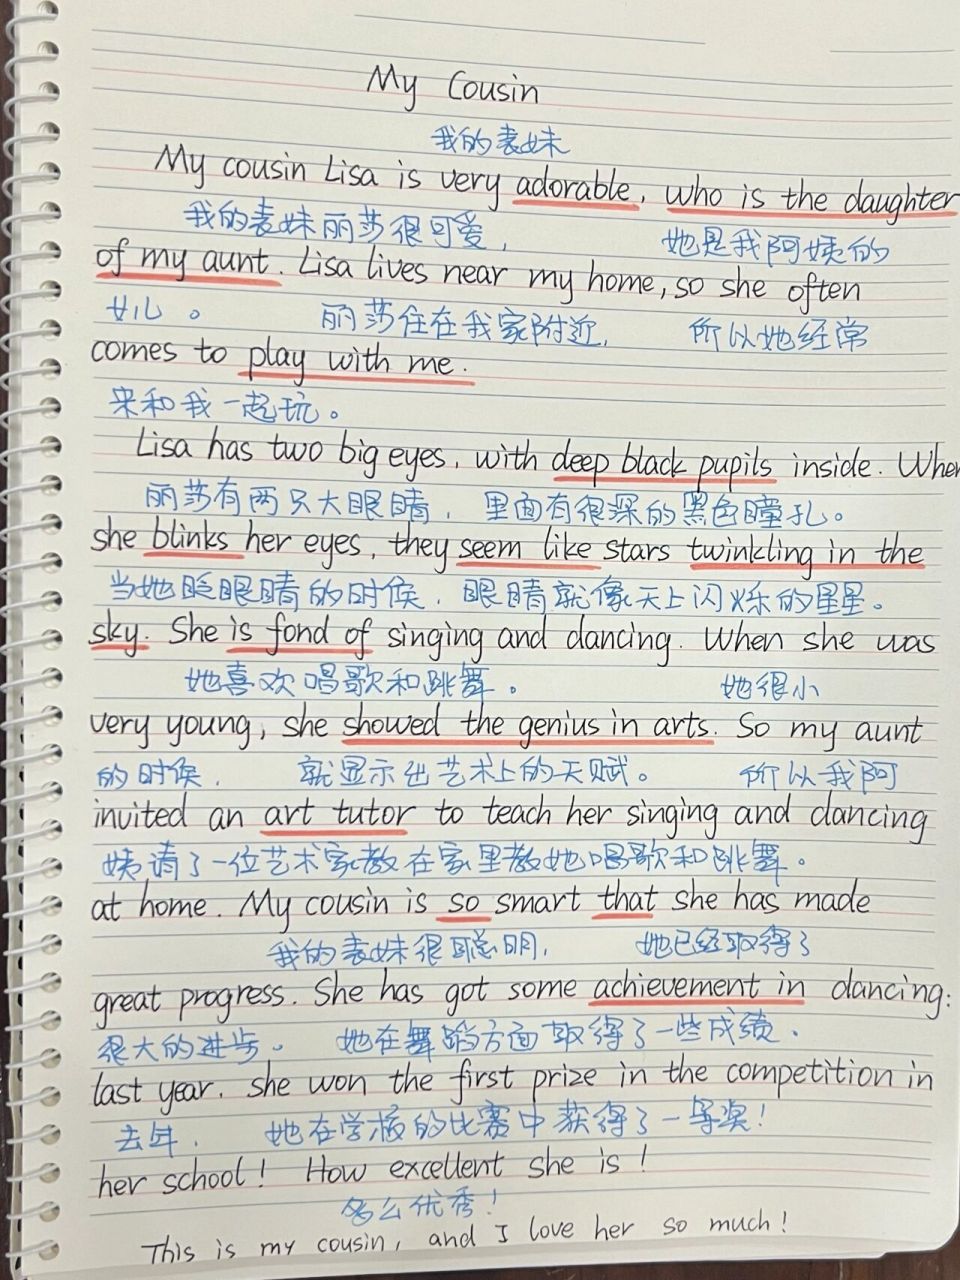 My Cousin
我的表妹
My cousin Lisa is very adorable, who is the daughter
我的表妹丽莎很可爱, 她是我阿姨的
of my aunt. Lisa lives near my home, so she often
女儿。 丽莎住在我家附近, 所以她经常
comes to play with me.
来和我一起玩。
Lisa has two big eyes, with deep black pupils inside. When
丽莎有两只大眼睛, 里面有很深的黑色瞳孔。
she blinks her eyes, they seem like stars twinkling in the
当她眨眼睛的时候, 眼睛就像天上闪烁的星星。
sky. She is fond of singing and dancing. When she was
她喜欢唱歌和跳舞。 她很小
very young, she showed the genius in arts. So my aunt
的时候, 就显示出艺术上的天赋。 所以我阿
invited an art tutor to teach her singing and dancing
姨请了一位艺术家教在家里教她唱歌和跳舞。
at home. My cousin is so smart that she has made
我的表妹很聪明, 她已经取得了
great progress. She has got some achievement in dancing:
很大的进步。 她在舞蹈方面取得了一些成绩.
last year. she won the first prize in the competition in
去年, 她在学校的比赛中获得了一等奖!
her school! How excellent she is!
多么优秀!
This is my cousin, and I love her so much!